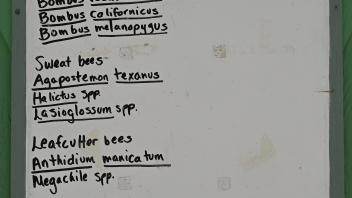 Bombus
Bombus californicus
Bombus melanopygus
Sweat bees
Agapostemon texanus
Halictus spp.
Lasioglossum spp.
Leafcutter bees
Anthidium manicatum
Megachile spp.